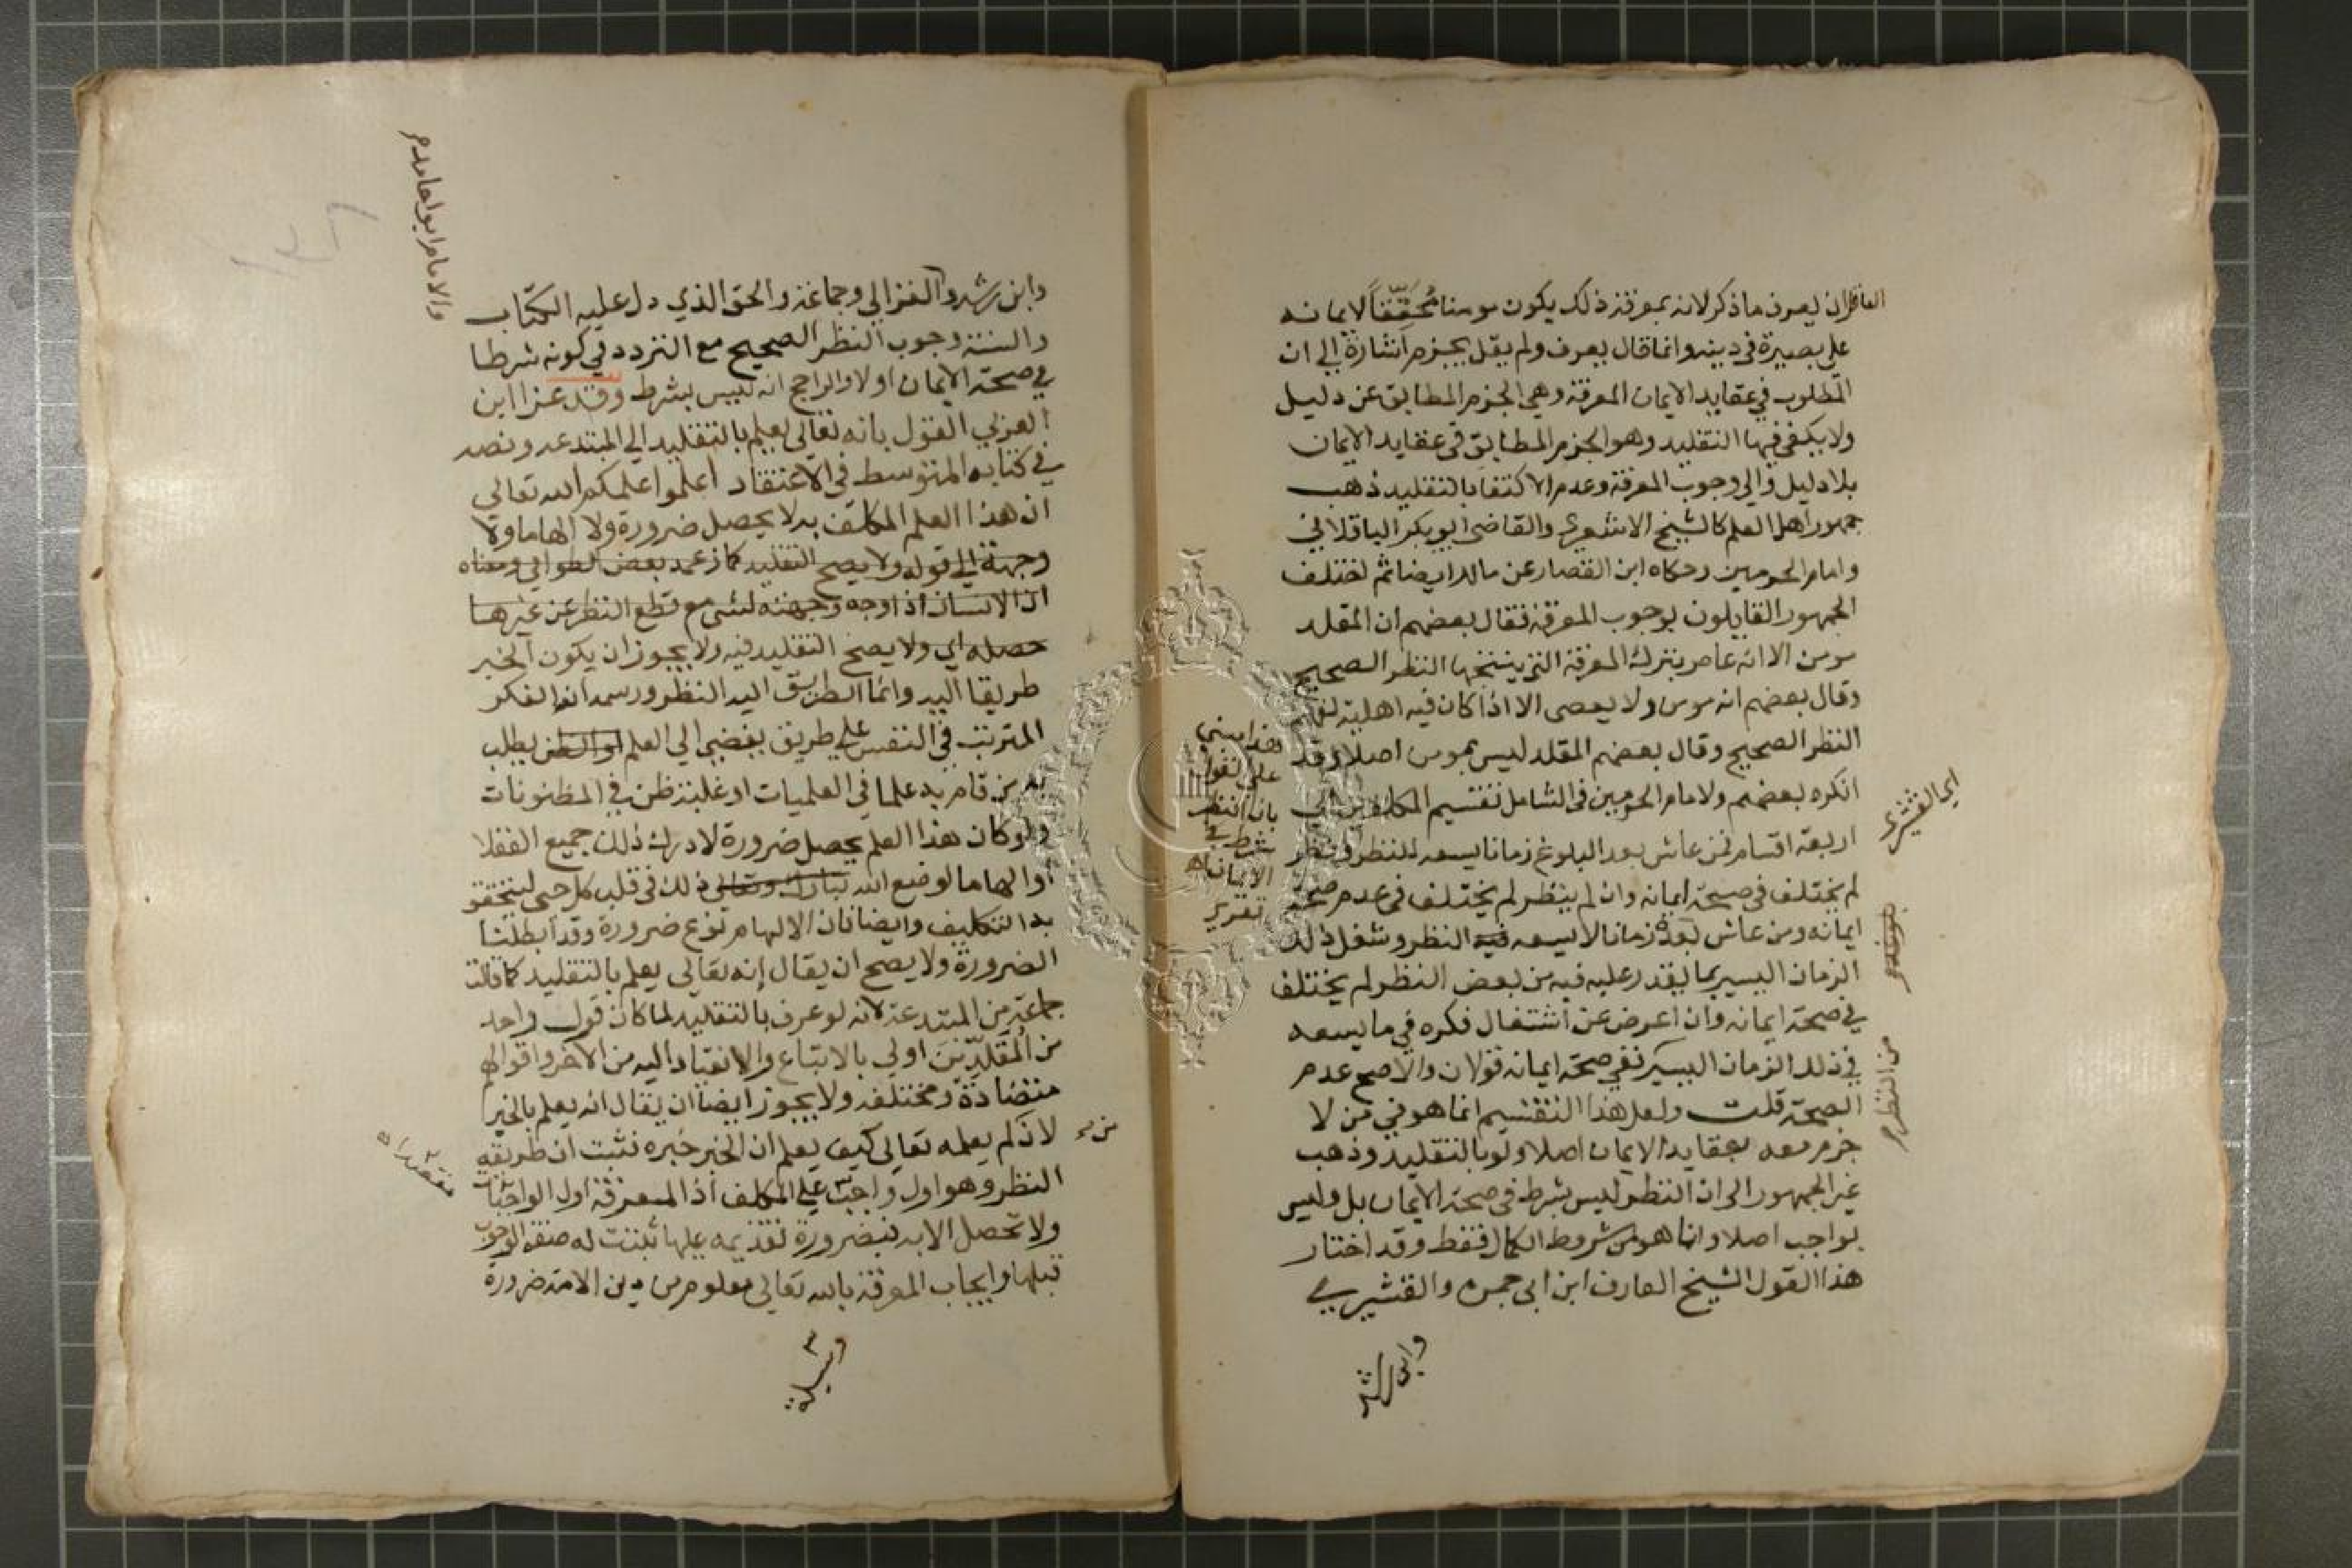 العاقل ان يعرف ما ذكر لانه بمعرفة ذلك يكون مومنا مُحَقِّقاً لايمانه
على بصيرة في دينه وانما قال يعرف ولم يقل يجزم اشارة الى ان
المطلوب في عقايد الايمان المعرفة وهي الجزم المطابق عن دليل
ولا يكفي فيها التقليد وهو الجزم المطابق في عقايد الايمان
بلا دليل والى وجوب المعرفة وعدم الاكتفا بالتقليد ذهب
جمهور اهل العلم كالشيخ الاشعري والقاضي ابو بكر الباقلاني
وامام الحرمين وحكاه ابن القصار عن مالك ايضا ثم اختلف
الجمهور القايلون بوجوب المعرفة فقال بعضهم ان المقلد
مومن الا انه عاص بترك المعرفة التي ينتجها النظر الصحيح
وقال بعضهم انه مومن ولا يعصى الا اذا كان فيه اهلية لفهم
النظر الصحيح وقال بعضهم المقلد ليس بمومن اصلا وقد
انكره بعضهم ولامام الحرمين في الشامل تقسيم المكلفين الى
اربعة اقسام فمن عاش بعد البلوغ زمانا يسعه للنظر ونظر
لم يختلف في صحة ايمانه وان لم ينظر لم يختلف في عدم صحة
ايمانه ومن عاش بعده زمانا لا يسعه فيه النظر وشغل ذلك
الزمان اليسير بما يقدر عليه فيه من بعض النظر لم يختلف
في صحة ايمانه وان اعرض عن اشتغال فكره في ما يسعه
في ذلك الزمان اليسير ففي صحة ايمانه قولان والاصح عدم
الصحة قلت ولعل هذا التقسيم انما هو في من لا
جزم معه بعقايد الايمان اصلا ولو بالتقليد وذهب
غير الجمهور الى ان النظر ليس بشرط في صحة الايمان بل وليس
بواجب اصلا وانما هو من شروط الكمال فقط وقد اختار
هذا القول الشيخ العارف ابن ابي جمرة والقشيري
اي القشيري
من النظر م
وهذا مبني
على القول
بان النظر
شرط في
الايمان اهـ
تقرير
وابن رشد والغزالي وجماعة والحق الذي دل عليه الكتاب
والسنة وجوب النظر الصحيح مع التردد في كونه شرطا
في صحة الايمان اولا والراجح انه ليس بشرط وقد عزا ابن
العربي القول بانه تعالى يعلم بالتقليد الى المبتدعه ونصه
في كتابه المتوسط في الاعتقاد اعلموا علمكم الله تعالى
ان هذا العلم المكلف به لا يحصل ضرورة ولا الهاما ولا
وجهة الى قوله ولا يصح التقليد كما زعمه بعض الطوايف ومعناه
ان الانسان اذا وجه وجهته لشي مع قطع النظر عن غيرها
حصله اي ولا يصح التقليد فيه ولا يجوز ان يكون الخبر
طريقا اليه وانما الطريق اليه النظر ورسمه انه الفكر
المترتب في النفس على طريق يفضي الى العلم او الظن يطلب
به من قام به علما في العلميات او غلبة ظن في المظنونات
ولو كان هذا العلم يحصل ضرورة لادرك ذلك جميع العقلا
او الهاما لوضع الله تبارك وتعالى ذلك في قلب كل حي ليتحقق
به التكليف وايضا فان الالهام نوع ضرورة وقد ابطلنا
الضرورة ولا يصح ان يقال إنه تعالى يعلم بالتقليد كما قالت
جماعة من المبتدعة لانه لو عرف بالتقليد لما كان قول واحد
من المُقَلَّدِينَ اولى بالاتباع والانقياد اليه من الاخر واقوالهم
متضادة ومختلفه ولا يجوز ايضا ان يقال انه يعلم بالخبر
لان لم يعلمه تعالى كيف يعلم ان الخبر خبره فثبت ان طريقه
النظر وهو اول واجب على المكلف اذ المعرفة اول الواجبات
ولا تحصل الا به فبضرورة تقديمه عليها ثبتت له صفة الوجوب
قبلها وايجاب المعرفة بالله تعالى معلوم من دين الامة ضرورة
والامام ابو حامد م
من
وسيلة